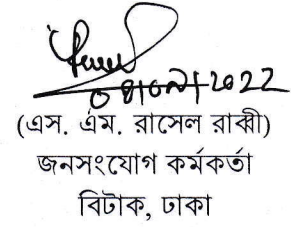 ০৪/০৯/২০২২
(এস. এম. রাসেল রাব্বী)
জনসংযোগ কর্মকর্তা
বিটাক, ঢাকা